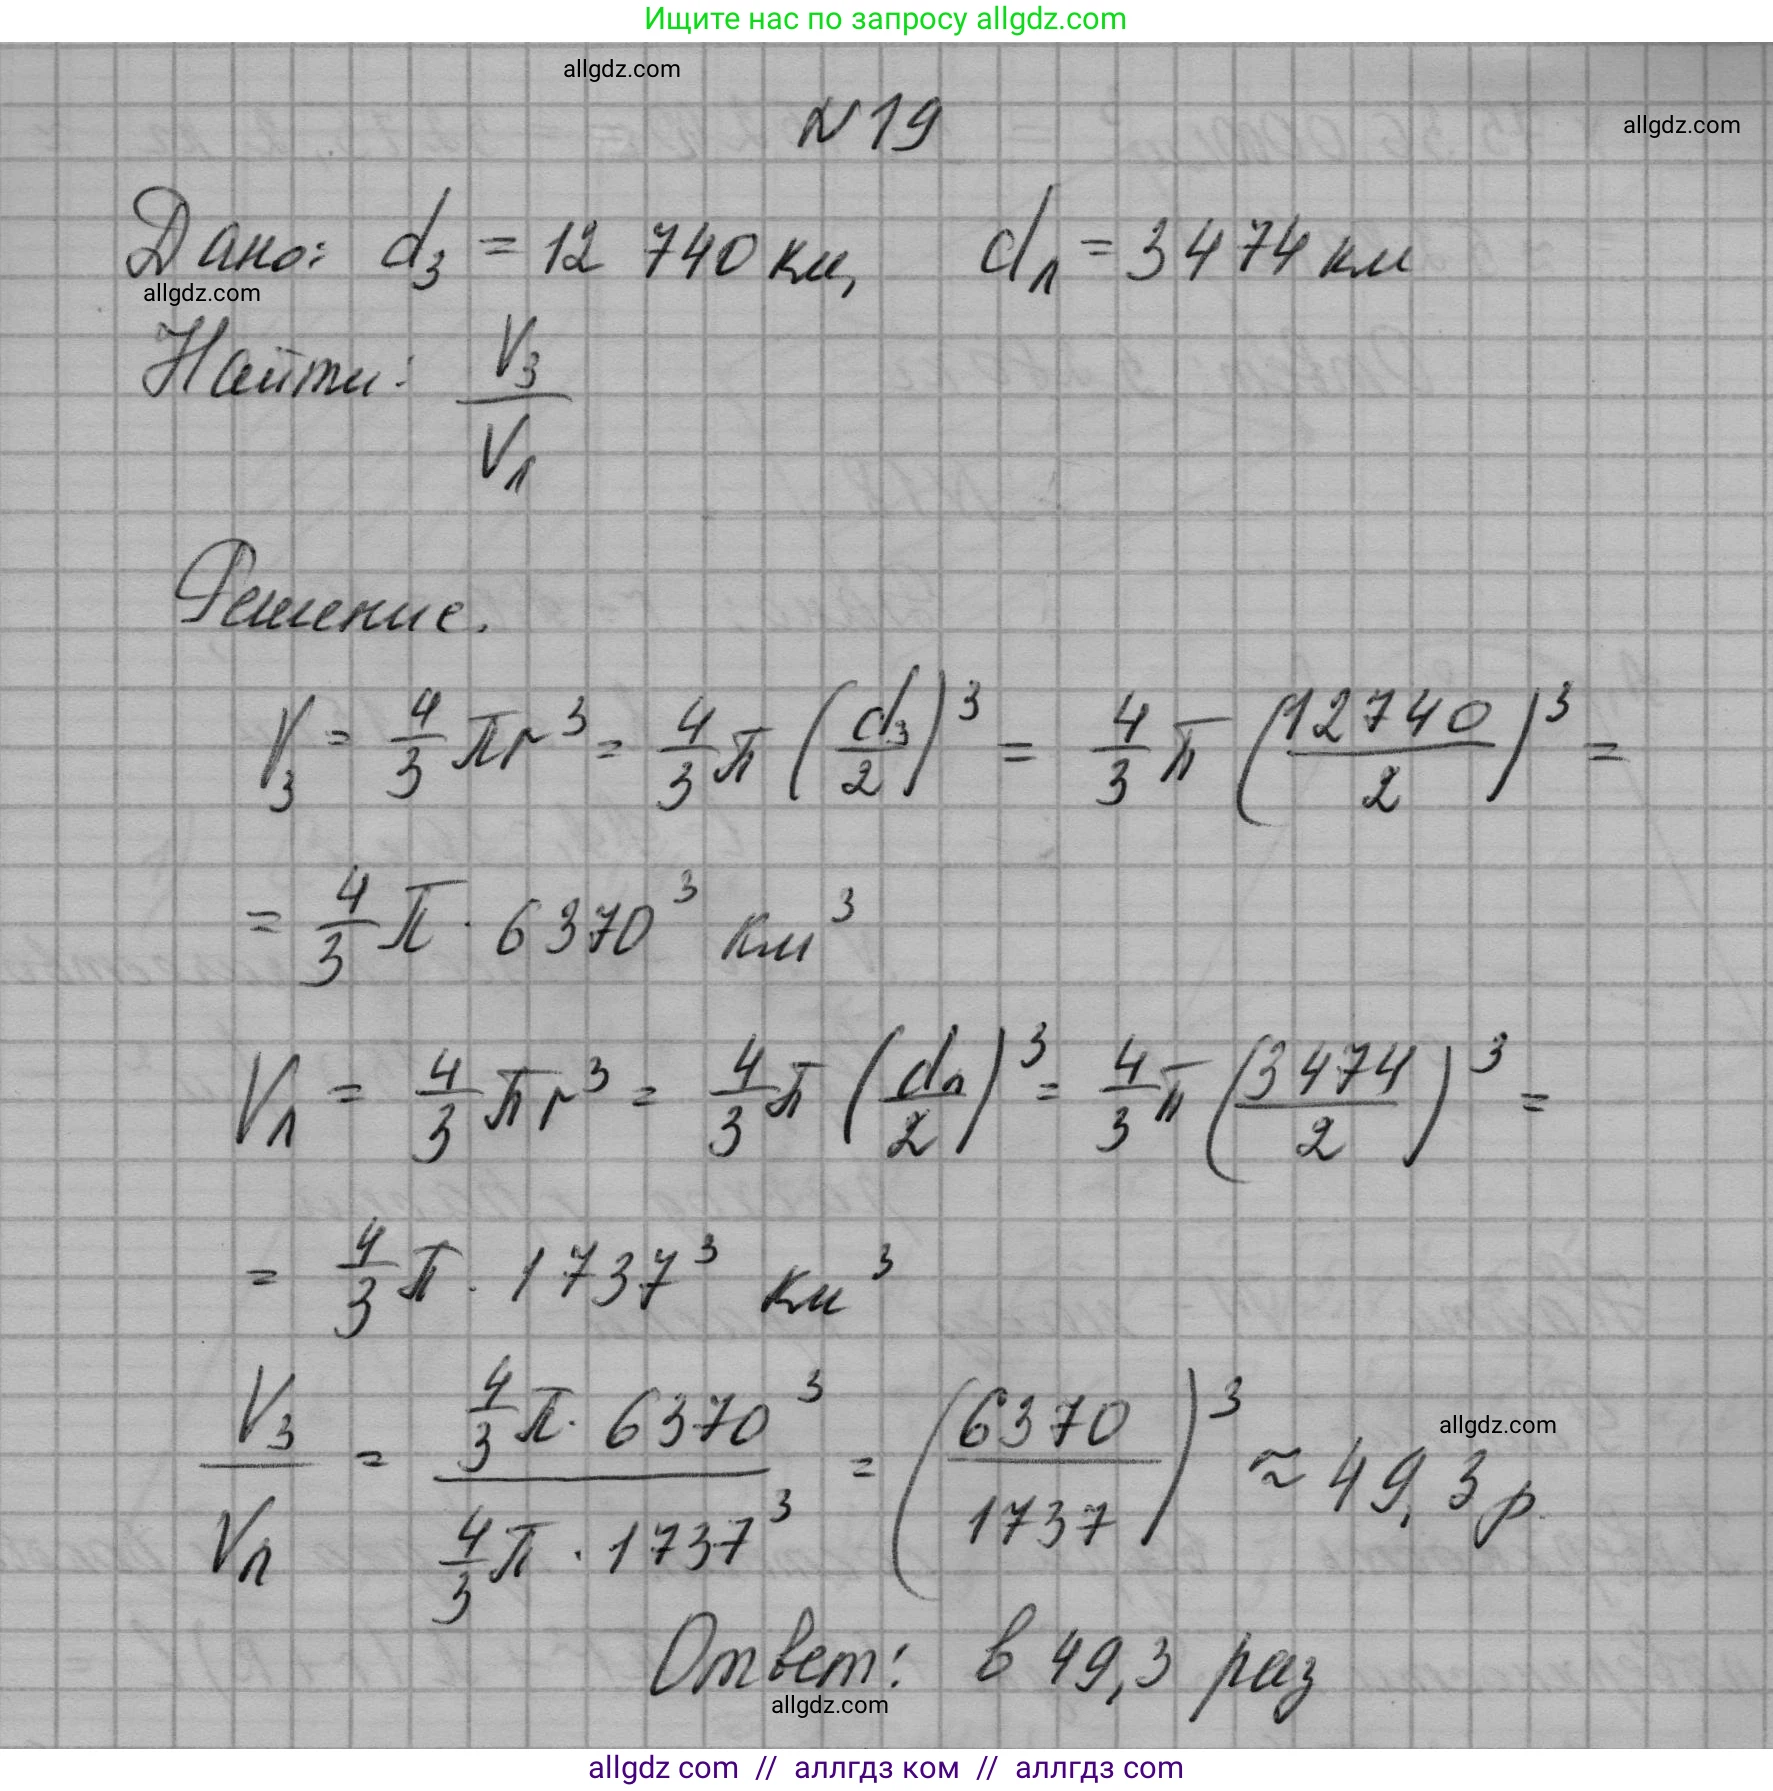 Ищите нас по запросу allgdz.com
allgdz.com
№19
allgdz.com
Дано: d₃ = 12 740 км, dл = 3474 км
allgdz.com
Найти: Vз/Vл
Решение.
Vз = 4/3 πr³ = 4/3 π (dз/2)³ = 4/3 π (12740/2)³ =
= 4/3 π · 6370³ км³
Vл = 4/3 πr³ = 4/3 π (dл/2)³ = 4/3 π (3474/2)³ =
= 4/3 π · 1737³ км³
Vз/Vл = (4/3 π · 6370³)/(4/3 π · 1737³) = (6370/1737)³ ≈ 49,3 р.
allgdz.com
Ответ: в 49,3 раз
allgdz.com
allgdz com // аллгдз ком // аллгдз com